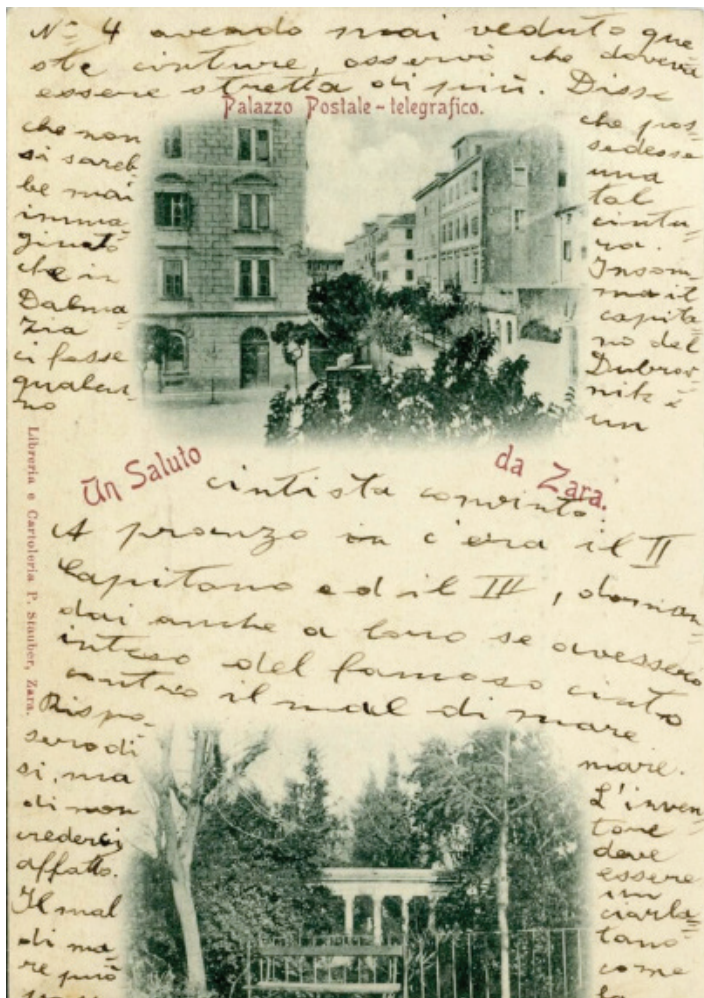 No 4 avendo mai veduto que
ste cinture, osservò che doveva
essere stretta di più. Disse
Palazzo Postale - telegrafico.
che non
si sareb-
be mai
imma-
ginato
che in
Dalma-
zia
ci fosse
qualcu-
no
che pos-
sedesse
una
tal
cintu-
ra.
Insom
ma il
capita-
no del
Dubrov-
nik è
un
Un Saluto da Zara.
cintista convinto.
A pranzo c'era il II
Capitano ed il III, doman-
dai anche a loro se avessero
inteso del famoso cinto
contro il mal di mare
Libreria e Cartoleria P. Stauber, Zara.
Rispo-
sero di
si, ma
di non
crederci
affatto.
Il mal
di ma-
re può
mare.
L'inven-
tore
deve
essere
un
ciarla-
tano
come